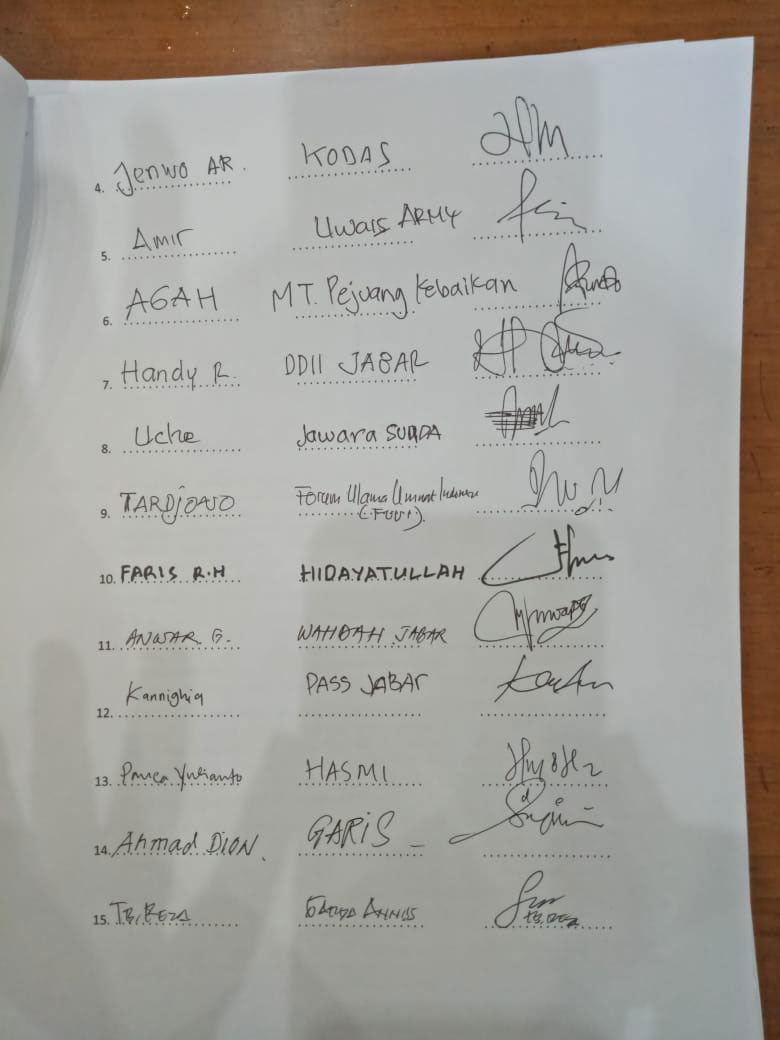 4. Jenwo AR. KODAS
5. Amir Uwais ARMY
6. AGAH MT. Pejuang Kebaikan
7. Handy R. DDII JABAR
8. Uche Jawara SUNDA
9. Forum Ulama Ummat Indonesia
(FUUI).
10. FARIS R.H HIDAYATULLAH
11. ANWAR. B. WAHDAH JABAR
12. Kannighia PASS JABAR
13. Panca Yulianto HASMI
14. Ahmad DION. GARIS
15. TB. REZA